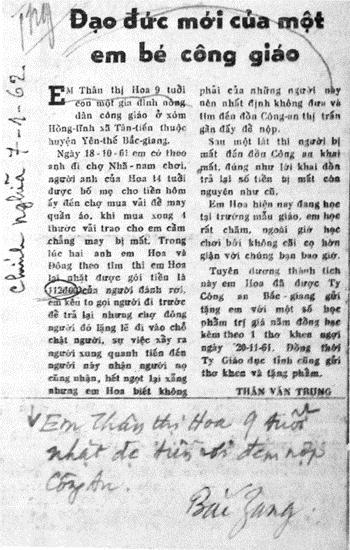 Đạo đức mới của một
em bé công giáo
EM Thân thị Hoa 9 tuổi
con một gia đình nông
dân công giáo ở xóm
Hồng-lĩnh xã Tân-tiến thuộc
huyện Yên-thế Bắc-giang.
Ngày 18-10-61 em có theo
anh đi chợ Nhã-nam chơi,
người anh của Hoa 14 tuổi
được bố mẹ cho tiền hôm
ấy đến chợ mua vải để may
quần áo, khi mua xong 4
thước vải trao cho em cầm
chẳng may bị mất. Trong
lúc hai anh em Hoa và
Đông theo tìm thì em Hoa
lại nhặt được gói tiền là
của người đánh rơi,
em kêu to gọi người đi trước
để trả lại nhưng chợ đông
người đó lặng lẽ đi vào chỗ
chật người, sự việc xẩy ra
người xung quanh tiến đến
người này nhận người nọ
cũng nhận, hết ngọt lại xẵng
nhưng em Hoa biết không
phải của những người này
nên nhất định không đưa và
tìm đến đồn Công-an thị trấn
gần đấy để nộp.
Sau một lát thì người bị
mất đến đồn Công an khai
mất, đúng như lời khai đồn
trả lại số tiền bị mất còn
nguyên như cũ.
Em Hoa hiện nay đang học
tại trường mẫu giáo, em học
rất chăm, ngoài giờ học
chơi bời không cãi cọ hờn
giận với chúng bạn bao giờ.
Tuyên dương thành tích
này em Hoa đã được Ty
Công an Bắc-giang gửi
tặng em với một số học
phẩm trị giá năm đồng bạc
kèm theo 1 thơ khen ngợi
ngày 20-11-61. Đồng thời
Ty Giáo dục tỉnh cũng gửi
thơ khen và tặng phẩm.
THÂN VĂN TRUNG
Chính nghĩa 7-1-62.
Em Thân thị Hoa 9 tuổi
nhặt đc tiền rồi đem nộp
Công An.
Bắc Zang.